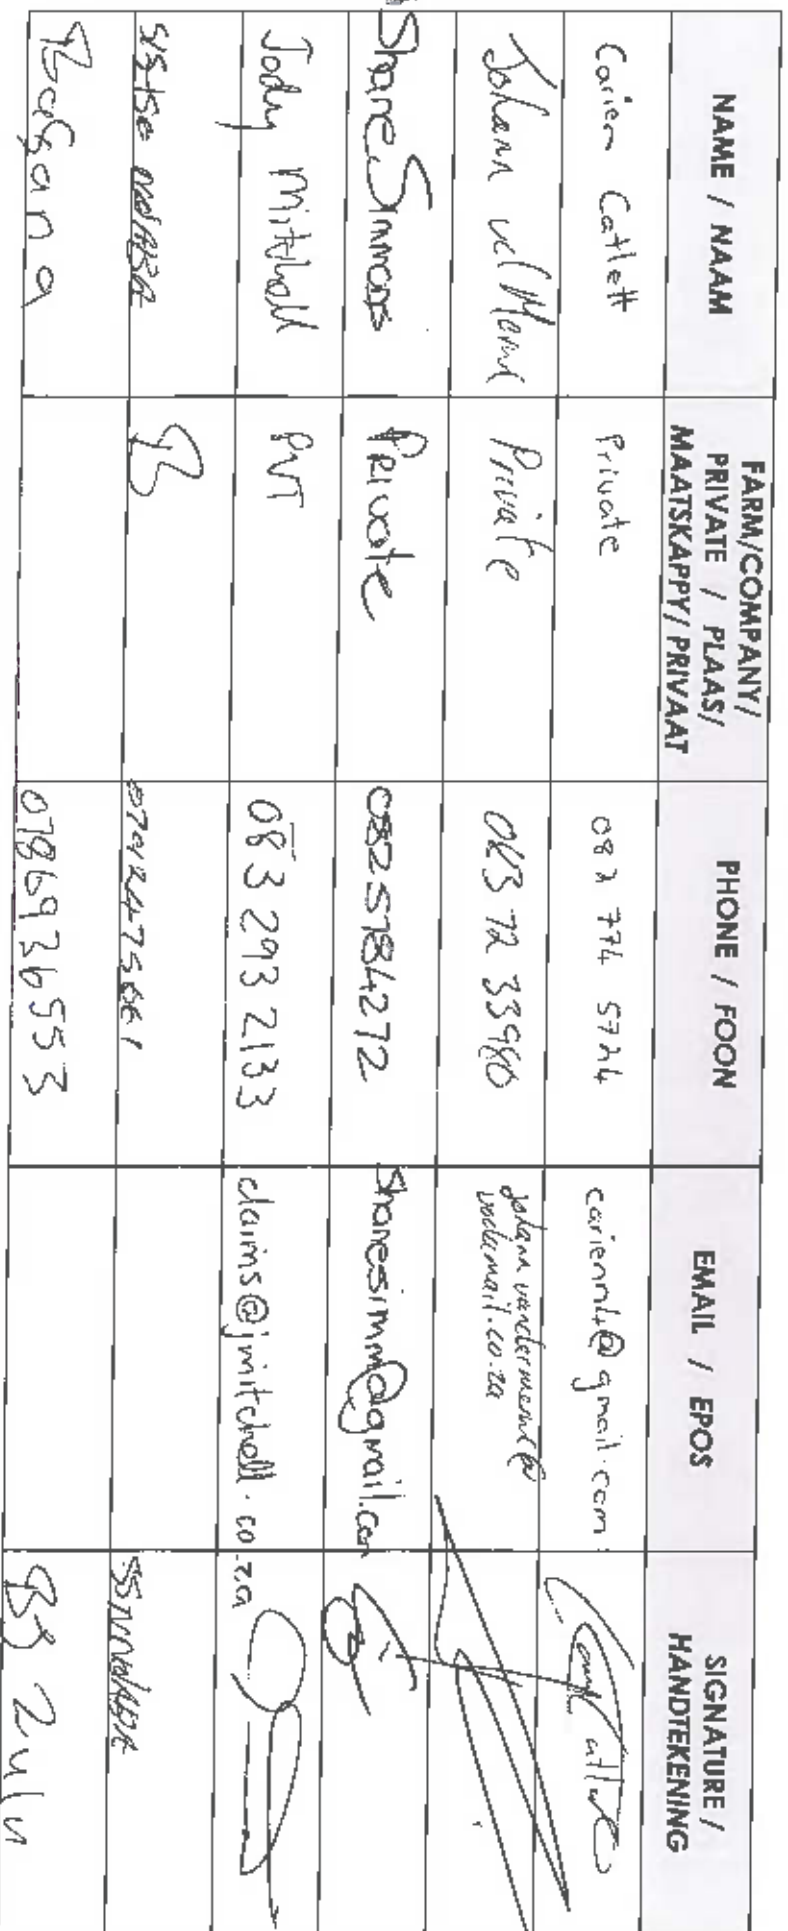 NAME / NAAM
FARM/COMPANY/
PRIVATE / PLAAS/
MAATSKAPPY/ PRIVAAT
PHONE / FOON
EMAIL / EPOS
SIGNATURE /
HANDTEKENING
Carien Catlett Private 082 774 5724 carienn4@gmail.com
Johann vd Merwe Private 083 72 33980
johann vandermerwe@
vodamail.co.za
Shane Simmons Private 0825784272 Shanesimm@gmail.com
Jody Mitchell PVT 083 293 2133 claims@jmitchell.co.za
0786936553 BS Zulu